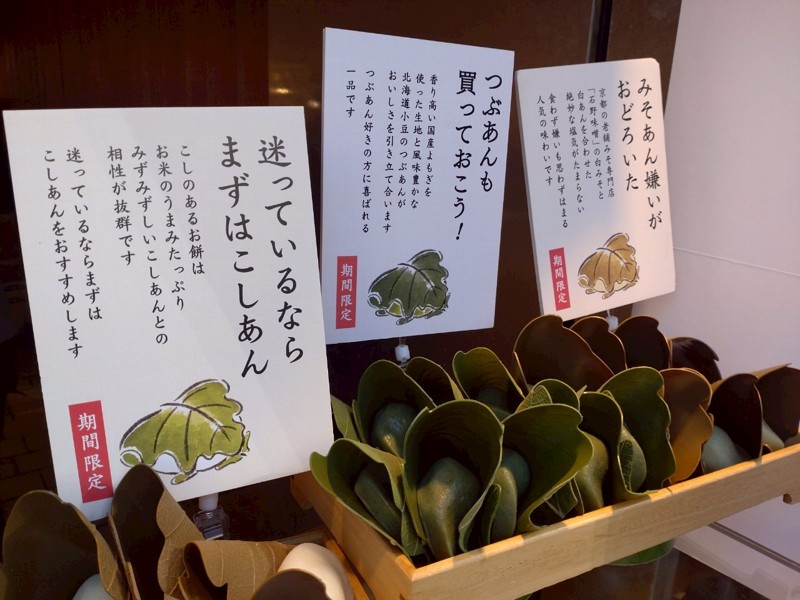 迷っているなら
まずはこしあん
こしのあるお餅は
お米のうまみたっぷり
みずみずしいこしあんとの
相性が抜群です
迷っているならまずは
こしあんをおすすめします
期間限定
つぶあんも
買っておこう!
香り高い国産よもぎを
使った生地と風味豊かな
北海道小豆のつぶあんが
おいしさを引き立て合います
つぶあん好きの方に喜ばれる
一品です
期間限定
みそあん嫌いが
おどろいた
京都の老舗みそ専門店
「石野味噌」の白みそと
白あんを合わせた
絶妙な塩気がたまらない
食わず嫌いも思わずはまる
人気の味わいです
期間限定